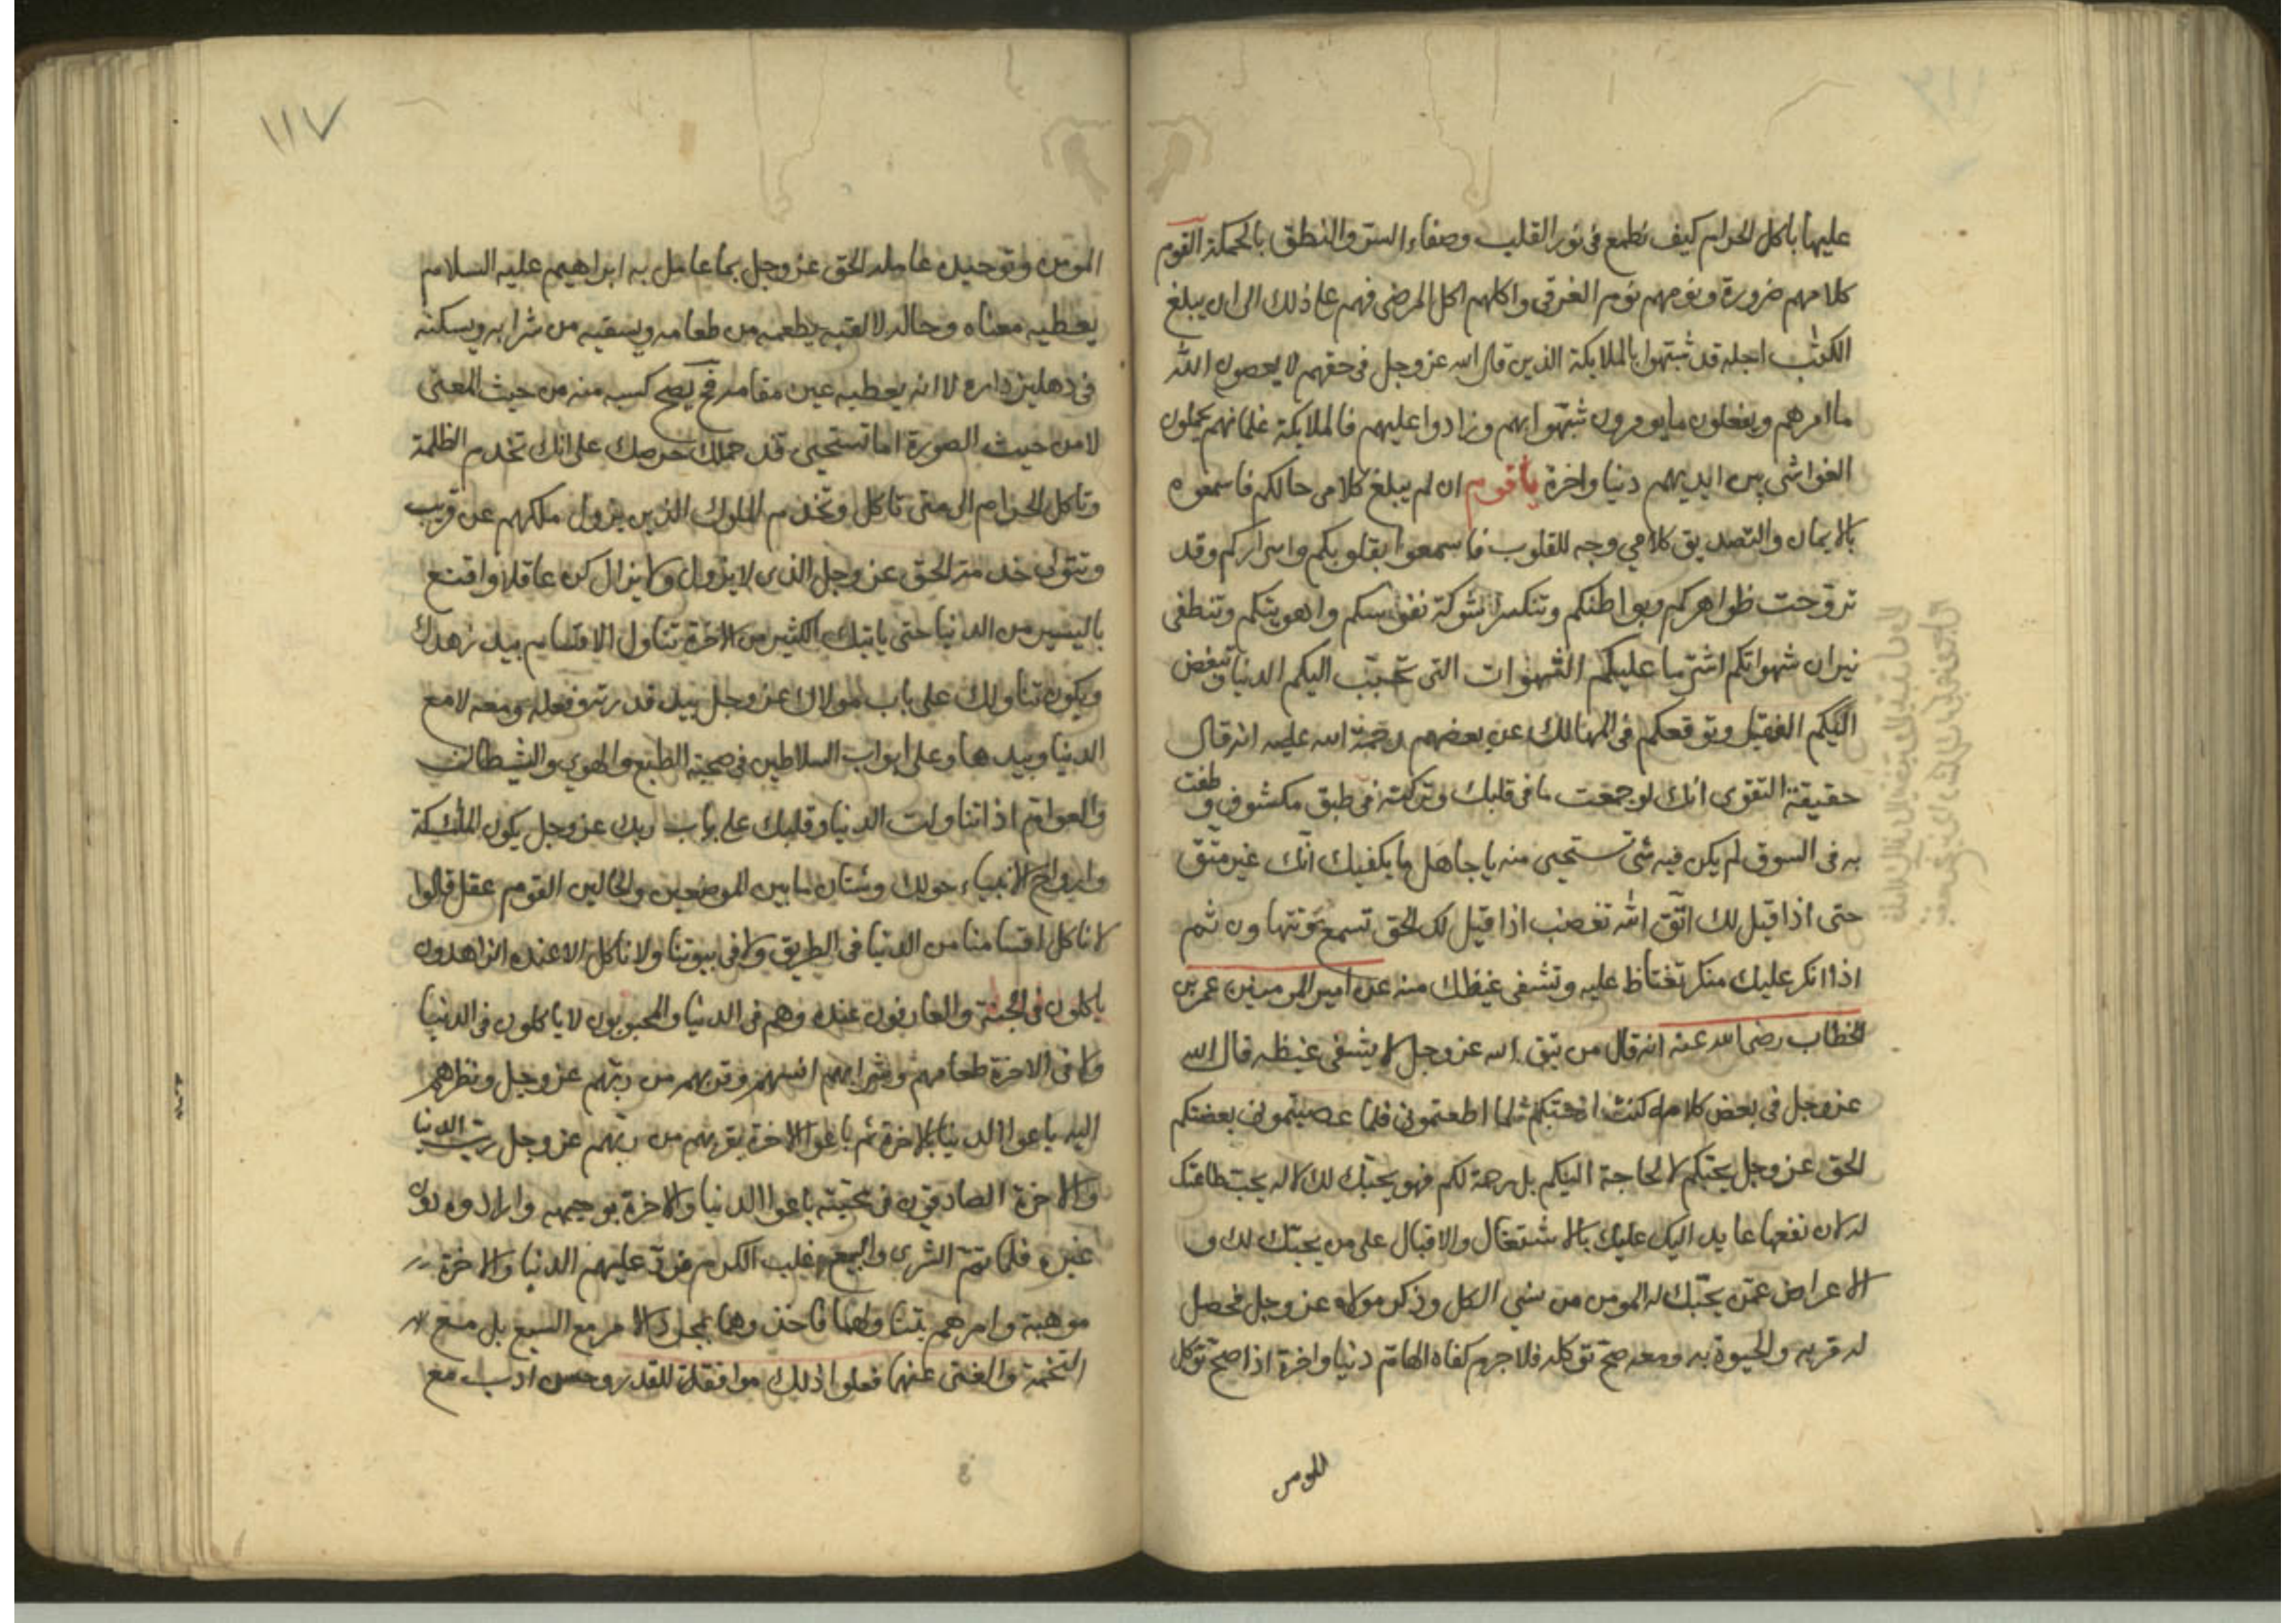 عليها باكل الحرام كيف تطمع فى نور القلب وصفاء السر والنطق بالحكمة القوم
كلامهم ضرورة ونومهم نوم الغرقى واكلهم اكل المرضى فهم على ذلك الى ان يبلغ
الكتب اجله قد شبتهوا بالملايكة الذين قال الله عز وجل فى حقهم لا يعصون الله
ما امرهم ويفعلون ما يومرون شبهوا بهم وزادوا عليهم فالملايكة غلمانهم يحملون
الغواشى بين ايديهم دنيا واخرة يا قوم ان لم يبلغ كلامى حالكم فاسمعوه
بالايمان والتصديق كلامي وجه للقلوب فاسمعوا بقلوبكم واسراركم وقد
تروحت ظواهركم وبواطنكم وتنكسر شوكة نفوسكم واهويتكم وتنطفى
نيران شهواتكم اشر ما عليكم الشهوات التى تحبب اليكم الدنيا وتبغض
اليكم الفقر وتوقعكم فى المهالك عن بعضهم رحمة الله عليه انه قال
حقيقة التقوى انك لو جمعت ما فى قلبك وتركته فى طبق مكشوف وطفت
به فى السوق لم يكن فيه شى تستحيى منه يا جاهل ما يكفيك انك غير متق
حتى اذا قيل لك اتق الله تغضب اذا قيل لك الحق تسمع وتتهاون ثم
اذا انكر عليك منكر تغتاظ عليه وتشفى غيظك منه عن امير المومنين عمر بن
الخطاب رضى الله عنه انه قال من يتق الله عز وجل لا يشفى غيظه قال الله
عز وجل فى بعض كلامه كنت احبتكم لما اطعتمونى فلما عصيتمونى بغضتكم
الحق عز وجل يحبكم لا لحاجة اليكم بل رحمة لكم فهو يحبك لك لا له يحب طاعتك
له لان نفعها عايد اليك عليك بالاشتغال والاقبال على من يحبك لك و
الاعراض عمن يحبك له المومن من نسي الكل وذكر مولاه عز وجل فحصل
له قربه والحيوة به ومعه صح توكله فلا جرم كفاه الهام دنيا واخرة اذا صح توكل
المومن
١١٧
المومن وتوحيده عامله الحق عز وجل بما عامل به ابراهيم عليه السلام
يعطيه معناه وحاله لا لقبه يطعمه من طعامه ويسقيه من شرابه ويسكنه
فى دهليز داره لا انه يعطيه عين مقامه فح يصح كسبه منه من حيث المعنى
لا من حيث الصورة اما تستحيى قد حملك حرصك على انك تخدم الظلمة
وتاكل الحرام الى متى تاكل وتخدم الملوك الذين يزول ملكهم عن قريب
وتتوانى خدمة الحق عز وجل الذى لا يزول ولا يزال كن عاقلا واقنع
باليسير من الدنيا حتى ياتيك الكثير من الاخرة تناول الاقسام بيد زهدك
ويكون تناولك على باب مولاك عز وجل بيد قدرته وفعله ومعه لا مع
الدنيا وبيدها وعلى ابواب السلاطين فى صحبة الطبع والهوى والشيطان
والعوام اذا تناولت الدنيا وقلبك على باب ربك عز وجل يكون الملئكة
وارواح الانبياء حولك وشتان ما بين الموضعين والحالين القوم عقل قالوا
لا ناكل اقسامنا من الدنيا فى الطريق ولا فى بيوتنا ولا ناكل الا عنده الزاهدون
ياكلون فى الجنة والعارفون عنده وهم فى الدنيا والمحبوبون لا ياكلون فى الدنيا
ولا فى الاخرة طعامهم وشرابهم انسهم وقربهم من ربهم عز وجل ونظرهم
اليه باعوا الدنيا بالاخرة ثم باعوا الاخرة بقربهم من ربهم عز وجل رب الدنيا
والاخرة الصادقون فى محبته باعوا الدنيا والاخرة بوجهه وارادوه دون
غيره فلما تم الشرى والبيع غلب الكرم فرد عليهم الدنيا والاخرة
موهبة وامرهم بتناولهما فاخذوهما بمجرد الامر مع الشبع بل مع
التخمة والغنى عنهما فعلوا ذلك موافقة للقدر وحسن ادب مع